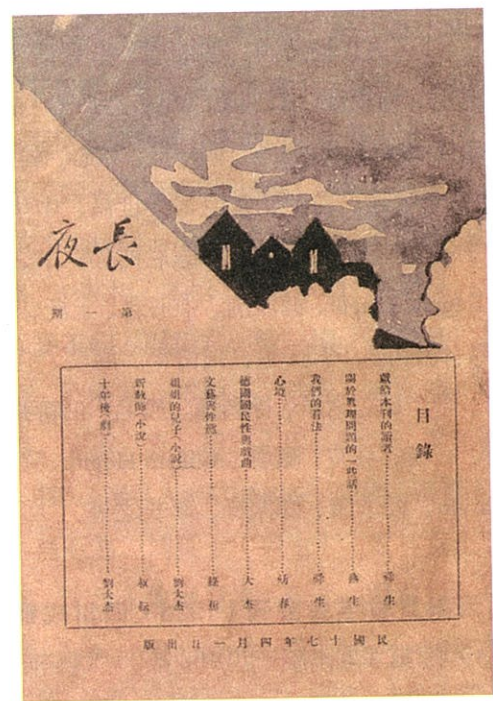 長夜
第一期
目錄
獻給本刊的讀者 舜生
關於真理問題的一些話 舜生
我們的看法 舜生
心境 春
德國國民性與戲曲 大杰
文藝與性慾
姐姐的兒子(小說) 劉大杰
新教師(小說)
十年後(劇) 劉大杰
民國十七年四月一日出版